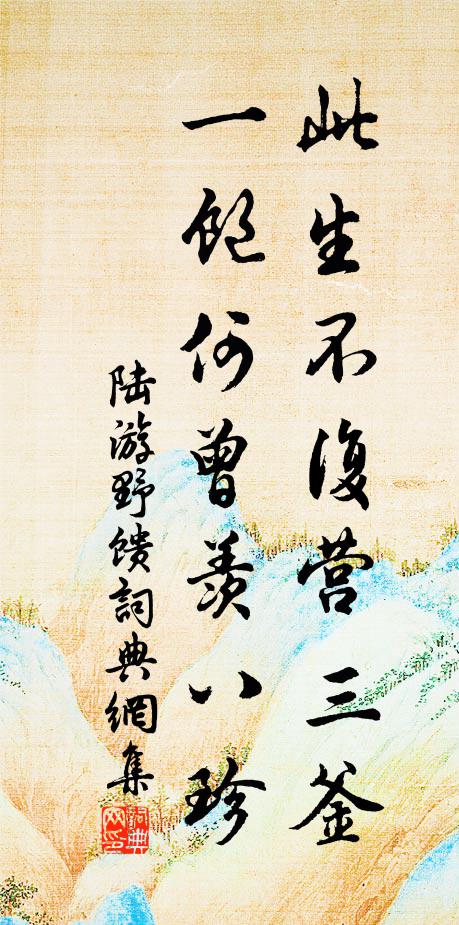 此生不復营三釜
一飽何曾羡八珍
陆游野馈詞典網集
詞典網印